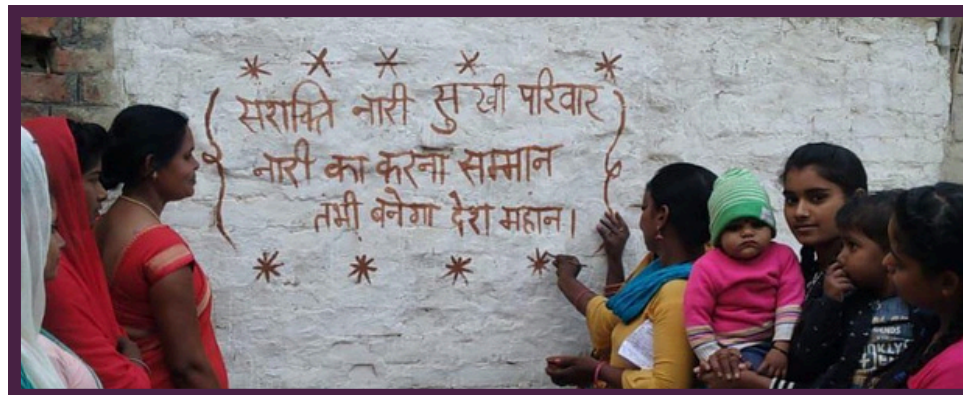 सशक्ति नारी सुखी परिवार
नारी का करना सम्मान
तभी बनेगा देश महान।